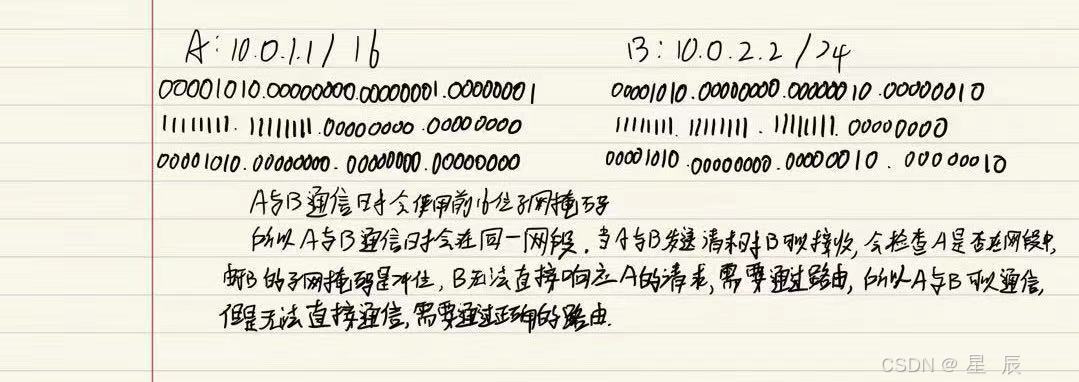 A:10.0.1.1/16 B:10.0.2.2/24
00001010.00000000.00000001.00000001 00001010.00000000.00000010.00000010
11111111.11111111.00000000.00000000 11111111.11111111.11111111.00000000
00001010.00000000.00000000.00000000 00001010.00000000.00000010.00000010
A与B通信时会使用前16位子网掩码
所以A与B通信时会在同一网段,当A与B发送请求时B可以接收,会检查A是否在网段中,
B的子网掩码是24位,B无法直接响应A的请求,需要通过路由,所以A与B可以通信,
但是无法直接通信,需要通过正确的路由.
CSDN @星 辰